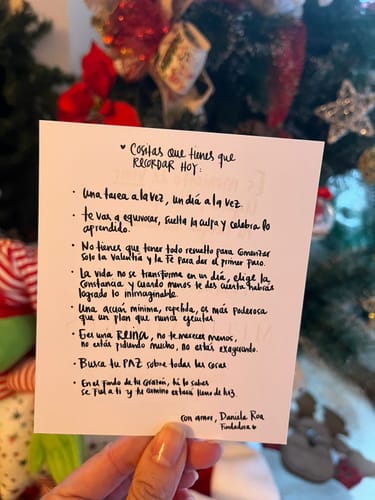 ♥ Cositas que tienes que
RECORDAR HOY:
• Una tarea a la vez, un día a la vez.
• Te vas a equivocar, suelta la culpa y celebra lo
aprendido.
• No tienes que tener todo resuelto para comenzar
solo la valentía y la fe para dar el primer paso.
• La vida no se transforma en un día, elige la
constancia y cuando menos te des cuenta habrás
logrado lo inimaginable.
• Una acción mínima, repetida, es más poderosa
que un plan que nunca ejecutas.
• Eres una REINA, no te mereces menos,
no estás pidiendo mucho, no estás exagerando.
• Busca tu PAZ sobre todas las cosas
• En el fondo de tu corazón, tú lo sabes
se fiel a ti y tu camino estará lleno de luz.
con amor, Daniela Roa
Fundadora ♥